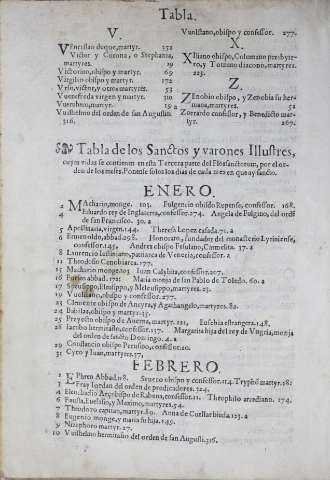 Tabla.
V.
Venceslao duque, martyr. 252
Victor y Corona, o Stephania, martyres. 19
Victorino, obispo y martyr. 69
Virgilio obispo y martyr. 172
Vrso, victor, y otros martyres. 53
Vvenefreda virgen y martyr. 310
Vverubero, martyr. 19.a
Vuilhelmo del orden de san Augustin.
316.
Vuulstano, obispo y confessor. 277.
X.
Xiliano obispo, Colomano presbytero, y Totnano diacono, martyres.
223.
Z.
Zenobio obispo, y Zenobia su hermana, martyres. 51
Zoerardo confessor, y Benedicto martyr. 267.
Tabla de los Sanctos y varones Illustres,
cuyas vidas se contienen en esta Tercera parte del Flossanctorum, por el orden de los meses. Ponense solos los dias de cada mes en que ay sancto.
ENERO.
2 Machario, monge. 105. Fulgencio obispo Rupense, confessor. 168.
4 Eduardo rey de Inglaterra, confessor. 274. Angela de Fulgino, del orden de san Francisco. 30.a
5 Apolitaria, virgen. 144. Theresa Lopez casada. 71.a
6 Ermenoldo, abbad. 298. Honorato, fundador del monasterio Lyrinense, confessor. 145. Andres obispo Fesulano, Carmelita. 37.a
8 Laurencio Iustiniano, patriarca de Venecia, confessor. 2
11 Theodosio Cenobiarca. 177.
15 Machario monge. 105 Iuan Calybita, confessor. 107.
16 Furseo abbad. 121. Maria monja de san Pablo de Toledo. 60.a
17 Speusippo, Eleusippo, y Meleusippo, martyres. 23.
19 Vuulstano, obispo y confessor. 277.
23 Clemente obispo de Ancyra, y Agathangelo, martyres. 82.
24 Babilas, obispo y martyr. 35.
25 Preyecto obispo de Auerna, martyr. 222. Eusebia estrangera. 148.
28 Iacobo hermitaño, confessor. 157. Margarita hija del rey de Vngria, monja del orden de sancto Domingo. 4.a
29 Constancio obispo Perusino, confessor. 20.
31 Cyro y Iuan, martyres. 37.
FEBRERO.
1 Ephren Abbad. 118. Seuero obispo y confessor. 114. Tryphõ martyr. 28:
3 Fray Iordan del orden de predicadores. 324.
4 Eleuchadio Arçobispo de Rabena, confessor. 21. Theophilo arcediano. 174.
6 Fausta, Euelasio, y Maximo, martyres. 54.
7 Theodoro capitan, martyr. 89. Anna de Cuellar biuda. 123.a
8 Eugenio monge, y maria su hija. 149.
9 Nizephoro martyr. 27.
10 Vuilhelmo hermitaño del orden de san Augusti. 316.